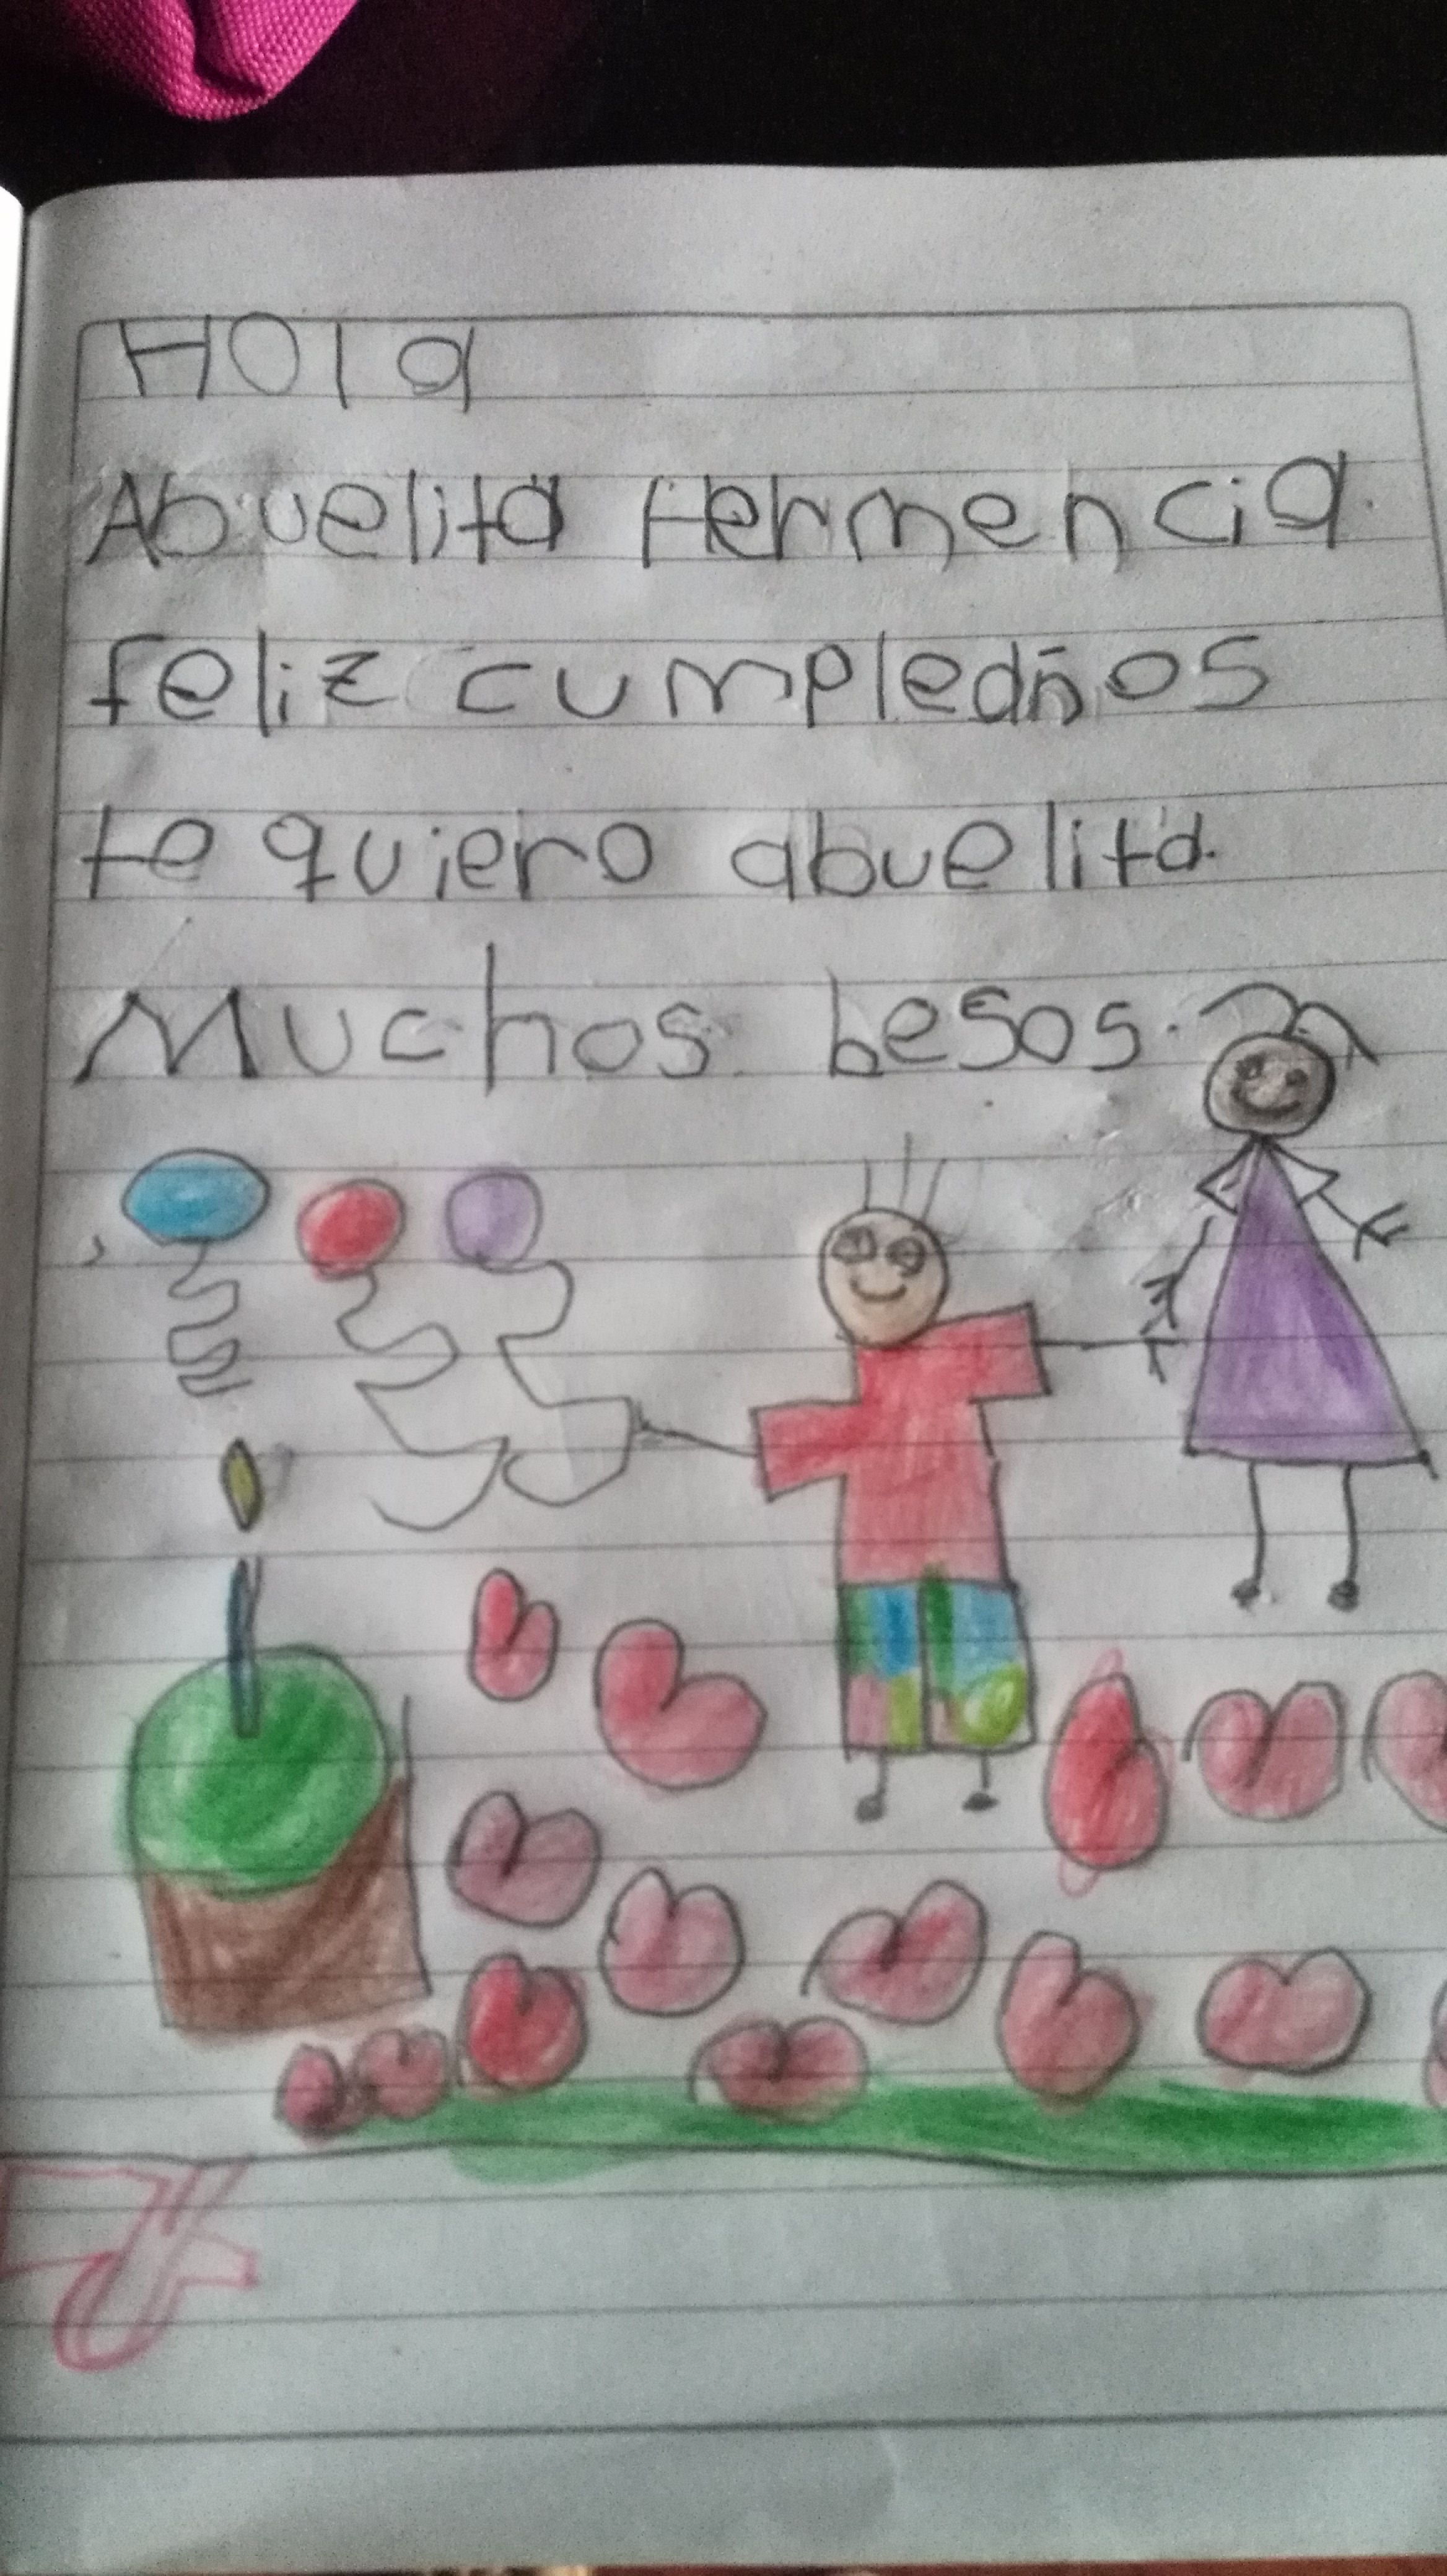 Hola
Abuelita Hermencia
feliz cumpleaños
te quiero abuelita.
Muchos besos.